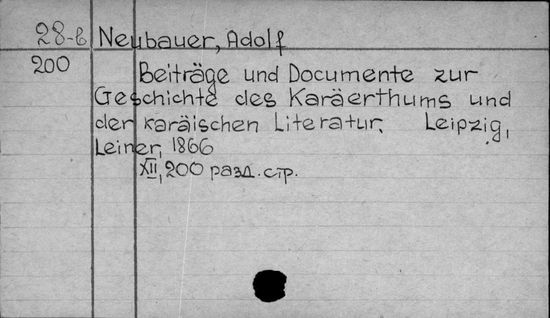 28-b Neubauer, Adolf
200 Beiträge und Documente zur
Geschichte des Karäerthums und
der karäischen Literatur. Leipzig,
Leiner, 1866
XII, 200 разд. стр.